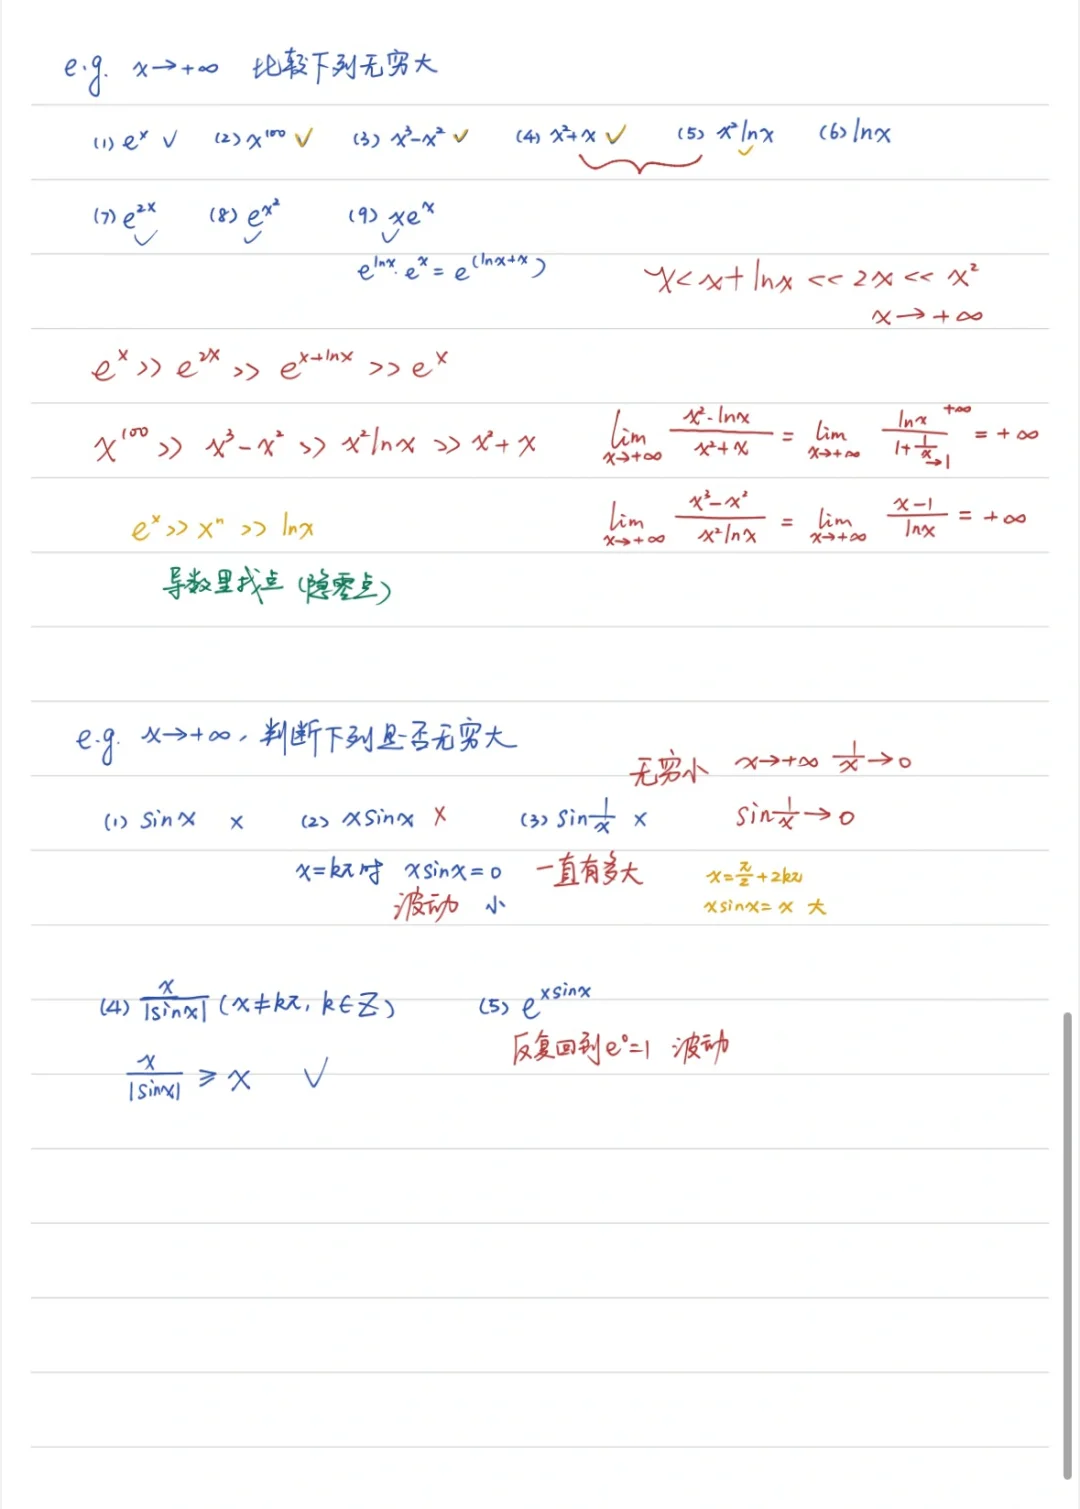 e.g. x→+∞ 比较下列无穷大
(1) eˣ ✓ (2) x¹⁰⁰ ✓ (3) x³-x² ✓ (4) x²+x ✓ (5) x²lnx ✓ (6) lnx
(7) e²ˣ ✓ (8) e^x² ✓ (9) xeˣ ✓
e^lnx · eˣ = e^(lnx+x)
x < x+lnx << 2x << x²
x→+∞
eˣ >> e²ˣ >> e^x+lnx >> eˣ
x¹⁰⁰ >> x³-x² >> x²lnx >> x²+x
lim x→+∞ x²·lnx / x²+x = lim x→+∞ lnx →+∞ / 1+1/x →1 = +∞
eˣ >> xⁿ >> lnx
lim x→+∞ x³-x² / x²lnx = lim x→+∞ x-1 / lnx = +∞
导数里找点 (隐零点)
e.g. x→+∞, 判断下列是否无穷大
无穷小 x→+∞ 1/x→0
(1) sinx × (2) xsinx × (3) sin1/x × sin1/x→0
x=kπ时 xsinx=0 一直有多大 x=π/2+2kπ
波动 小 xsinx=x 大
(4) x/|sinx| (x≠kπ, k∈Z) (5) e^xsinx
反复回到e⁰=1 波动
x/|sinx| ≥ x ✓